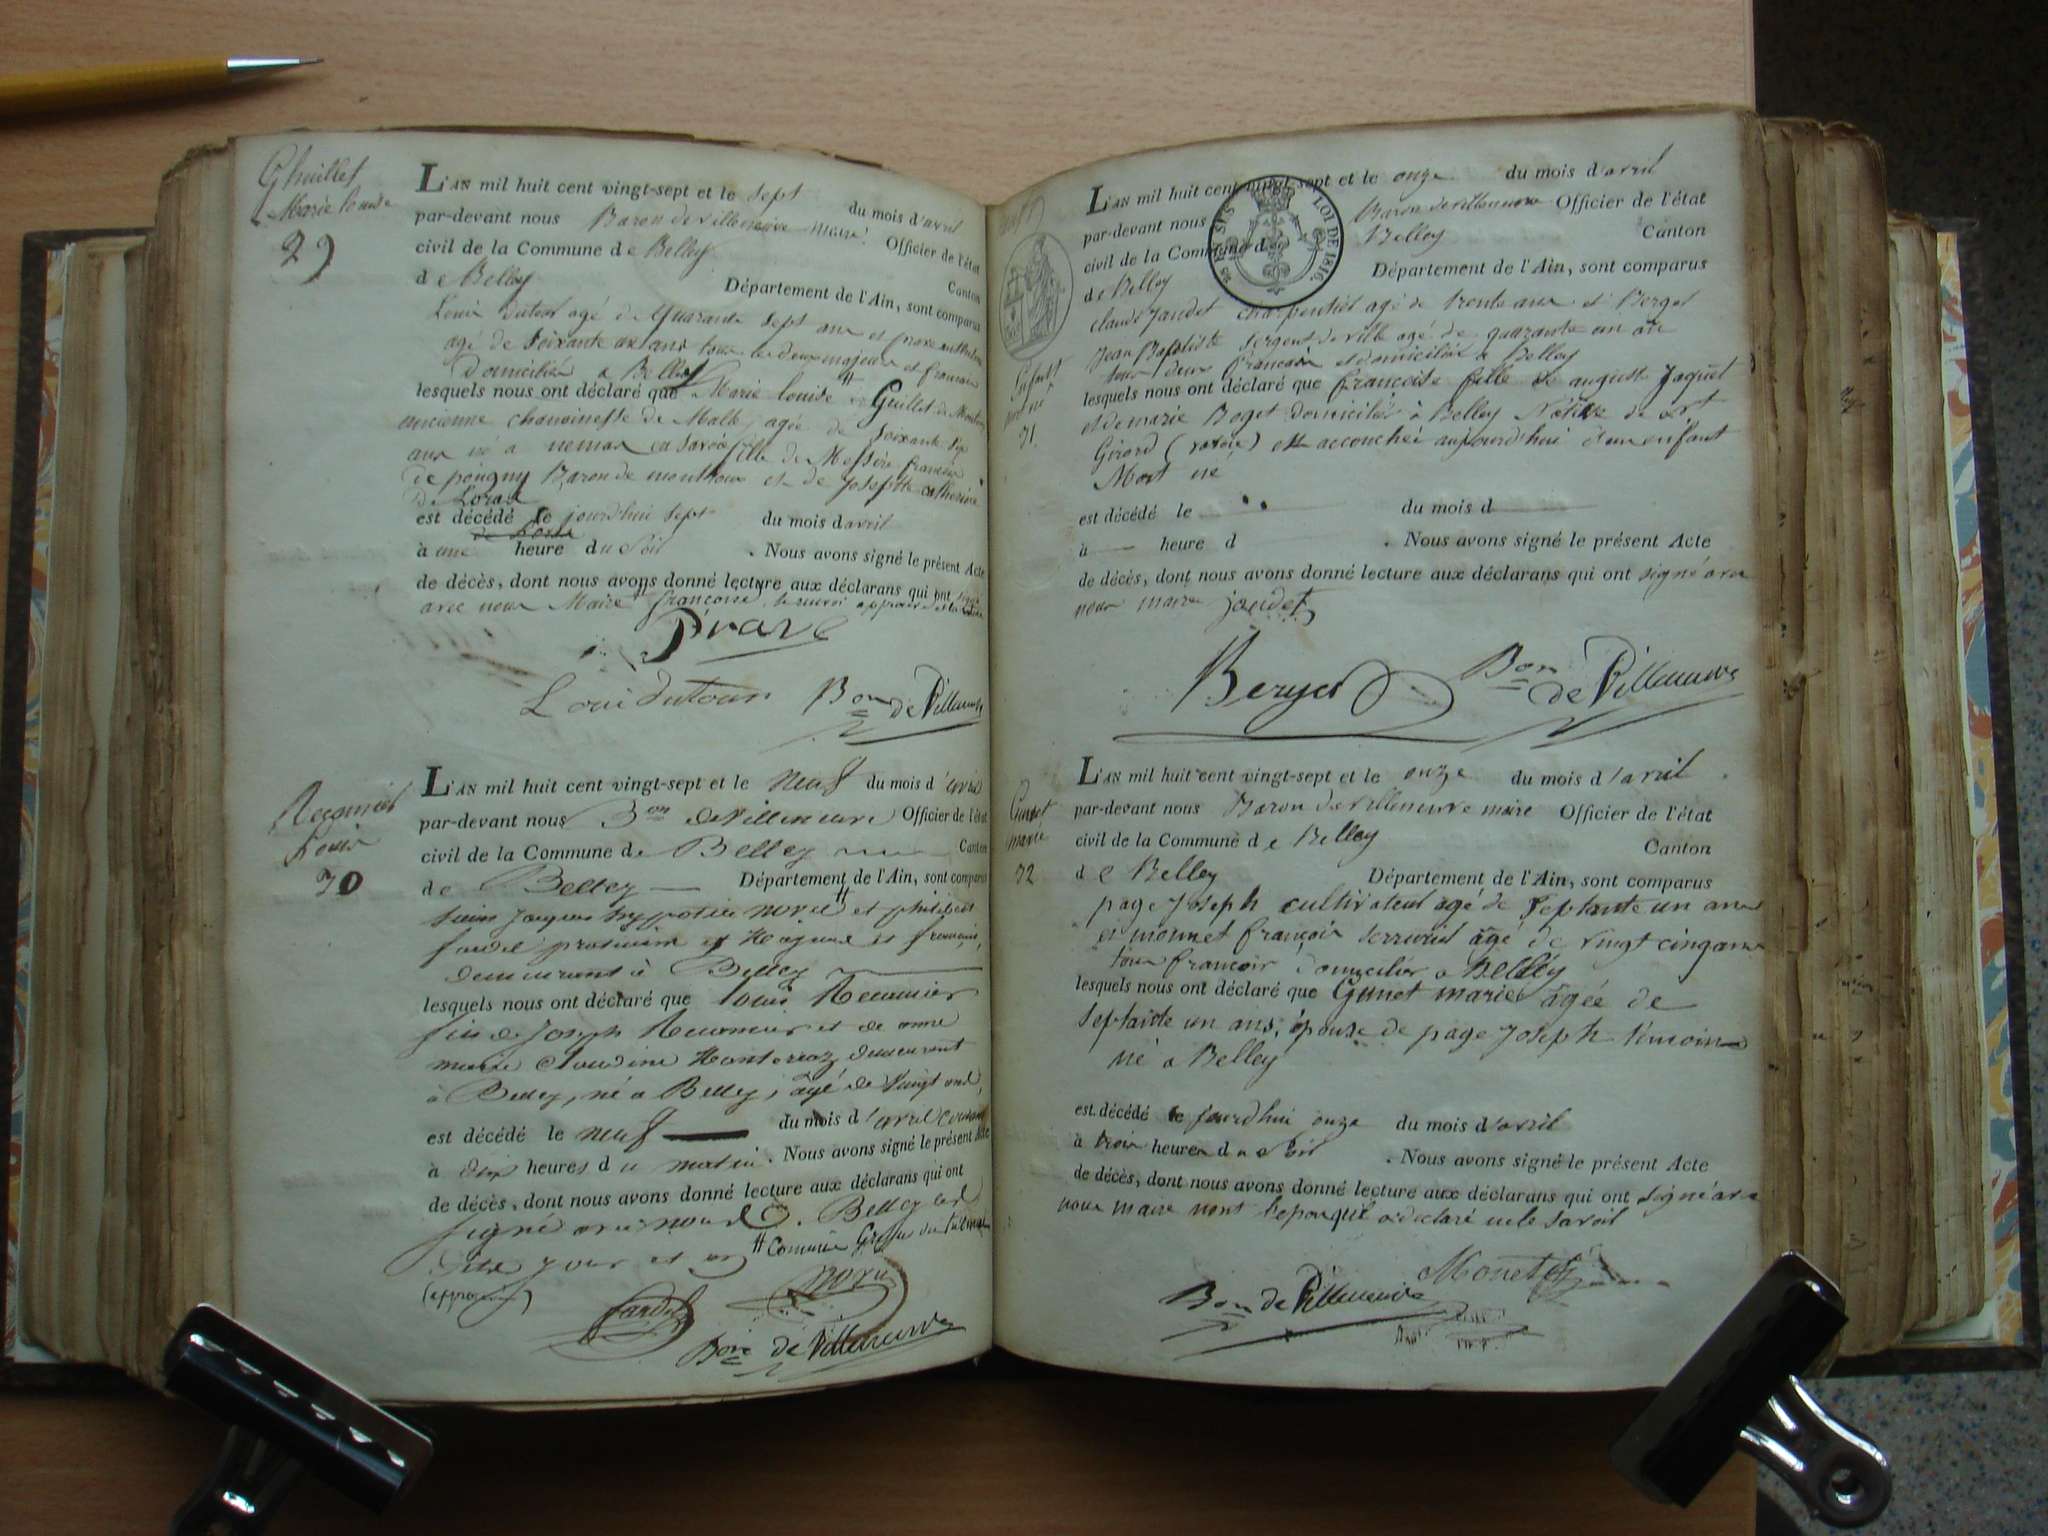 Guillet
Marie Louise
29
L'AN mil huit cent vingt-sept et le sept du mois d'avril
par-devant nous Baron de villeneuve maire Officier de l'état
civil de la Commune de Belley Canton
de Belley Département de l'Ain, sont comparus
Louis dutour agé de Quarante sept ans et
agé de soixante ans tous les deux majeurs et francais
Domiciliés a Belley
lesquels nous ont déclaré que Marie louise Guillet de
ancienne chanoinesse de Malte, agée de soixante dix
ans né a en savoie fille de Messire francois
de pougny Baron de monthoux et de Josephte catherine
De Loras
est décédé le jourdhui sept du mois davril
à une heure du Soir . Nous avons signé le présent Acte
de décès, dont nous avons donné lecture aux déclarans qui ont signé
avec nous Maire
Pravé
Loui dutour Bon de Villeneuve
Recamier
Louis
30
L'AN mil huit cent vingt-sept et le neuf du mois d'avril
par-devant nous Bon de Villeneuve Officier de l'état
civil de la Commune de Belley Canton
de Belley Département de l'Ain, sont comparus
et philibert
et Majeurs et francais,
demeurants à Belley
lesquels nous ont déclaré que louis Recamier
fils de Joseph Recamier et de anne
marie Claudine demeurant
à Belley, né a Belley, âgé de vingt ans,
est décédé le neuf du mois d'avril courant
à dix heures du matin. Nous avons signé le présent Acte
de décès, dont nous avons donné lecture aux déclarans qui ont
signé avec nous. Belley les
dits jour et an # Commis Greffier du tribunal
Bon de Villeneuve
SUS LOI DE 1816.
Enfant
mort né
31
L'AN mil huit cent vingt-sept et le onze du mois d'avril
par-devant nous Baron de villeneuve Officier de l'état
civil de la Commune de Belley Canton
de Belley Département de l'Ain, sont comparus
claude Jandet charpentier agé de trente ans et Berget
Jean Baptiste sergent de ville agé de quarante un an
tous deux francais et domiciliés a Belley
lesquels nous ont déclaré que francoise fille de august Jaquet
et de marie Boget domiciliés à Belley Native de
Girard (savoie) est accouchée aujourdhui d'un enfant
Mort né
est décédé le du mois d
à heure d . Nous avons signé le présent Acte
de décès, dont nous avons donné lecture aux déclarans qui ont signé avec
nous maire jandet
Berget Bon de Villeneuve
Gunet
marie
32
L'AN mil huit cent vingt-sept et le onze du mois d'avril
par-devant nous Baron de villeneuve maire Officier de l'état
civil de la Commune de Belley Canton
de Belley Département de l'Ain, sont comparus
page Joseph cultivateur agé de septante un ans
et monnet françois serrurier âgé de vingt cinq ans
tous francois domicilier a Belley
lesquels nous ont déclaré que Gunet marie âgée de
septante un ans, épouse de page Joseph témoin
né a Belley
est décédé le jourdhui onze du mois d'avril
à trois heures du soir . Nous avons signé le présent Acte
de décès, dont nous avons donné lecture aux déclarans qui ont signé avec
nous maire nont le page qui a declaré ne le savoir
Monet
Bon de Villeneuve